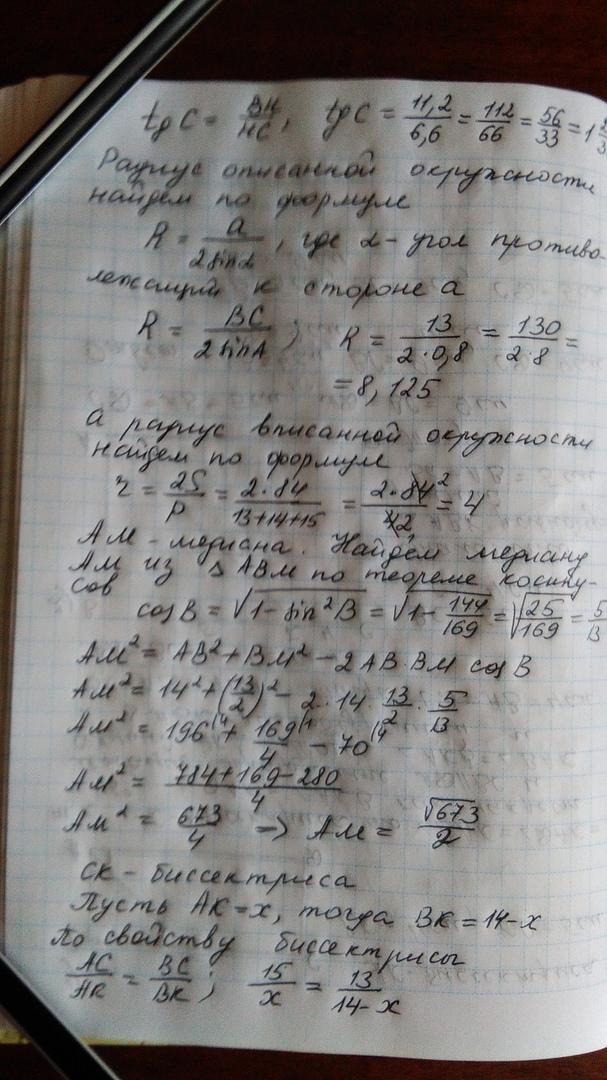 tg C = BH/HC; tg C = 11,2/6,6 = 112/66 = 56/33 = 1
Радиус описанной окружности
найдем по формуле
R = a/2sinα, где α - угол противо-
лежащий к стороне a
R = BC/2sinA; R = 13/2·0,8 = 130/2·8 =
= 8,125
а радиус вписанной окружности
найдем по формуле
r = 2S/P = 2·84/13+14+15 = 2·84²/42₁ = 4
AM - медиана. Найдём медиану
AM из △ABM по теореме косину-
сов
cos B = √1-sin²B = √1-144/169 = √25/169 = 5/13
AM² = AB² + BM² - 2AB·BM cos B
AM² = 14² + (13/2)² - 2·14·13/2·5/13
AM² = 196⁽⁴ + 169⁽¹/4 - 70⁽⁴
AM² = 784+169-280/4
AM² = 673/4 => AM = √673/2
CK - биссектриса
Пусть AK=x, тогда BK=14-x
По свойству биссектрисы
AC/AK = BC/BK; 15/x = 13/14-x